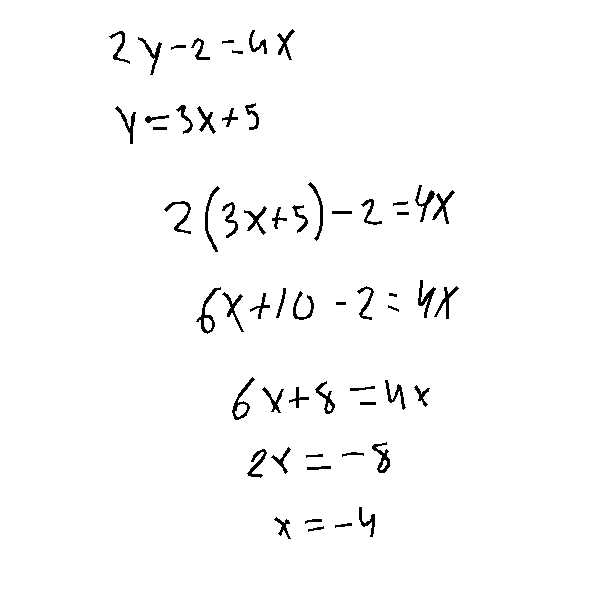 2y-2=4x
y=3x+5
2(3x+5)-2=4x
6x+10-2=4x
6x+8=4x
2x=-8
x=-4